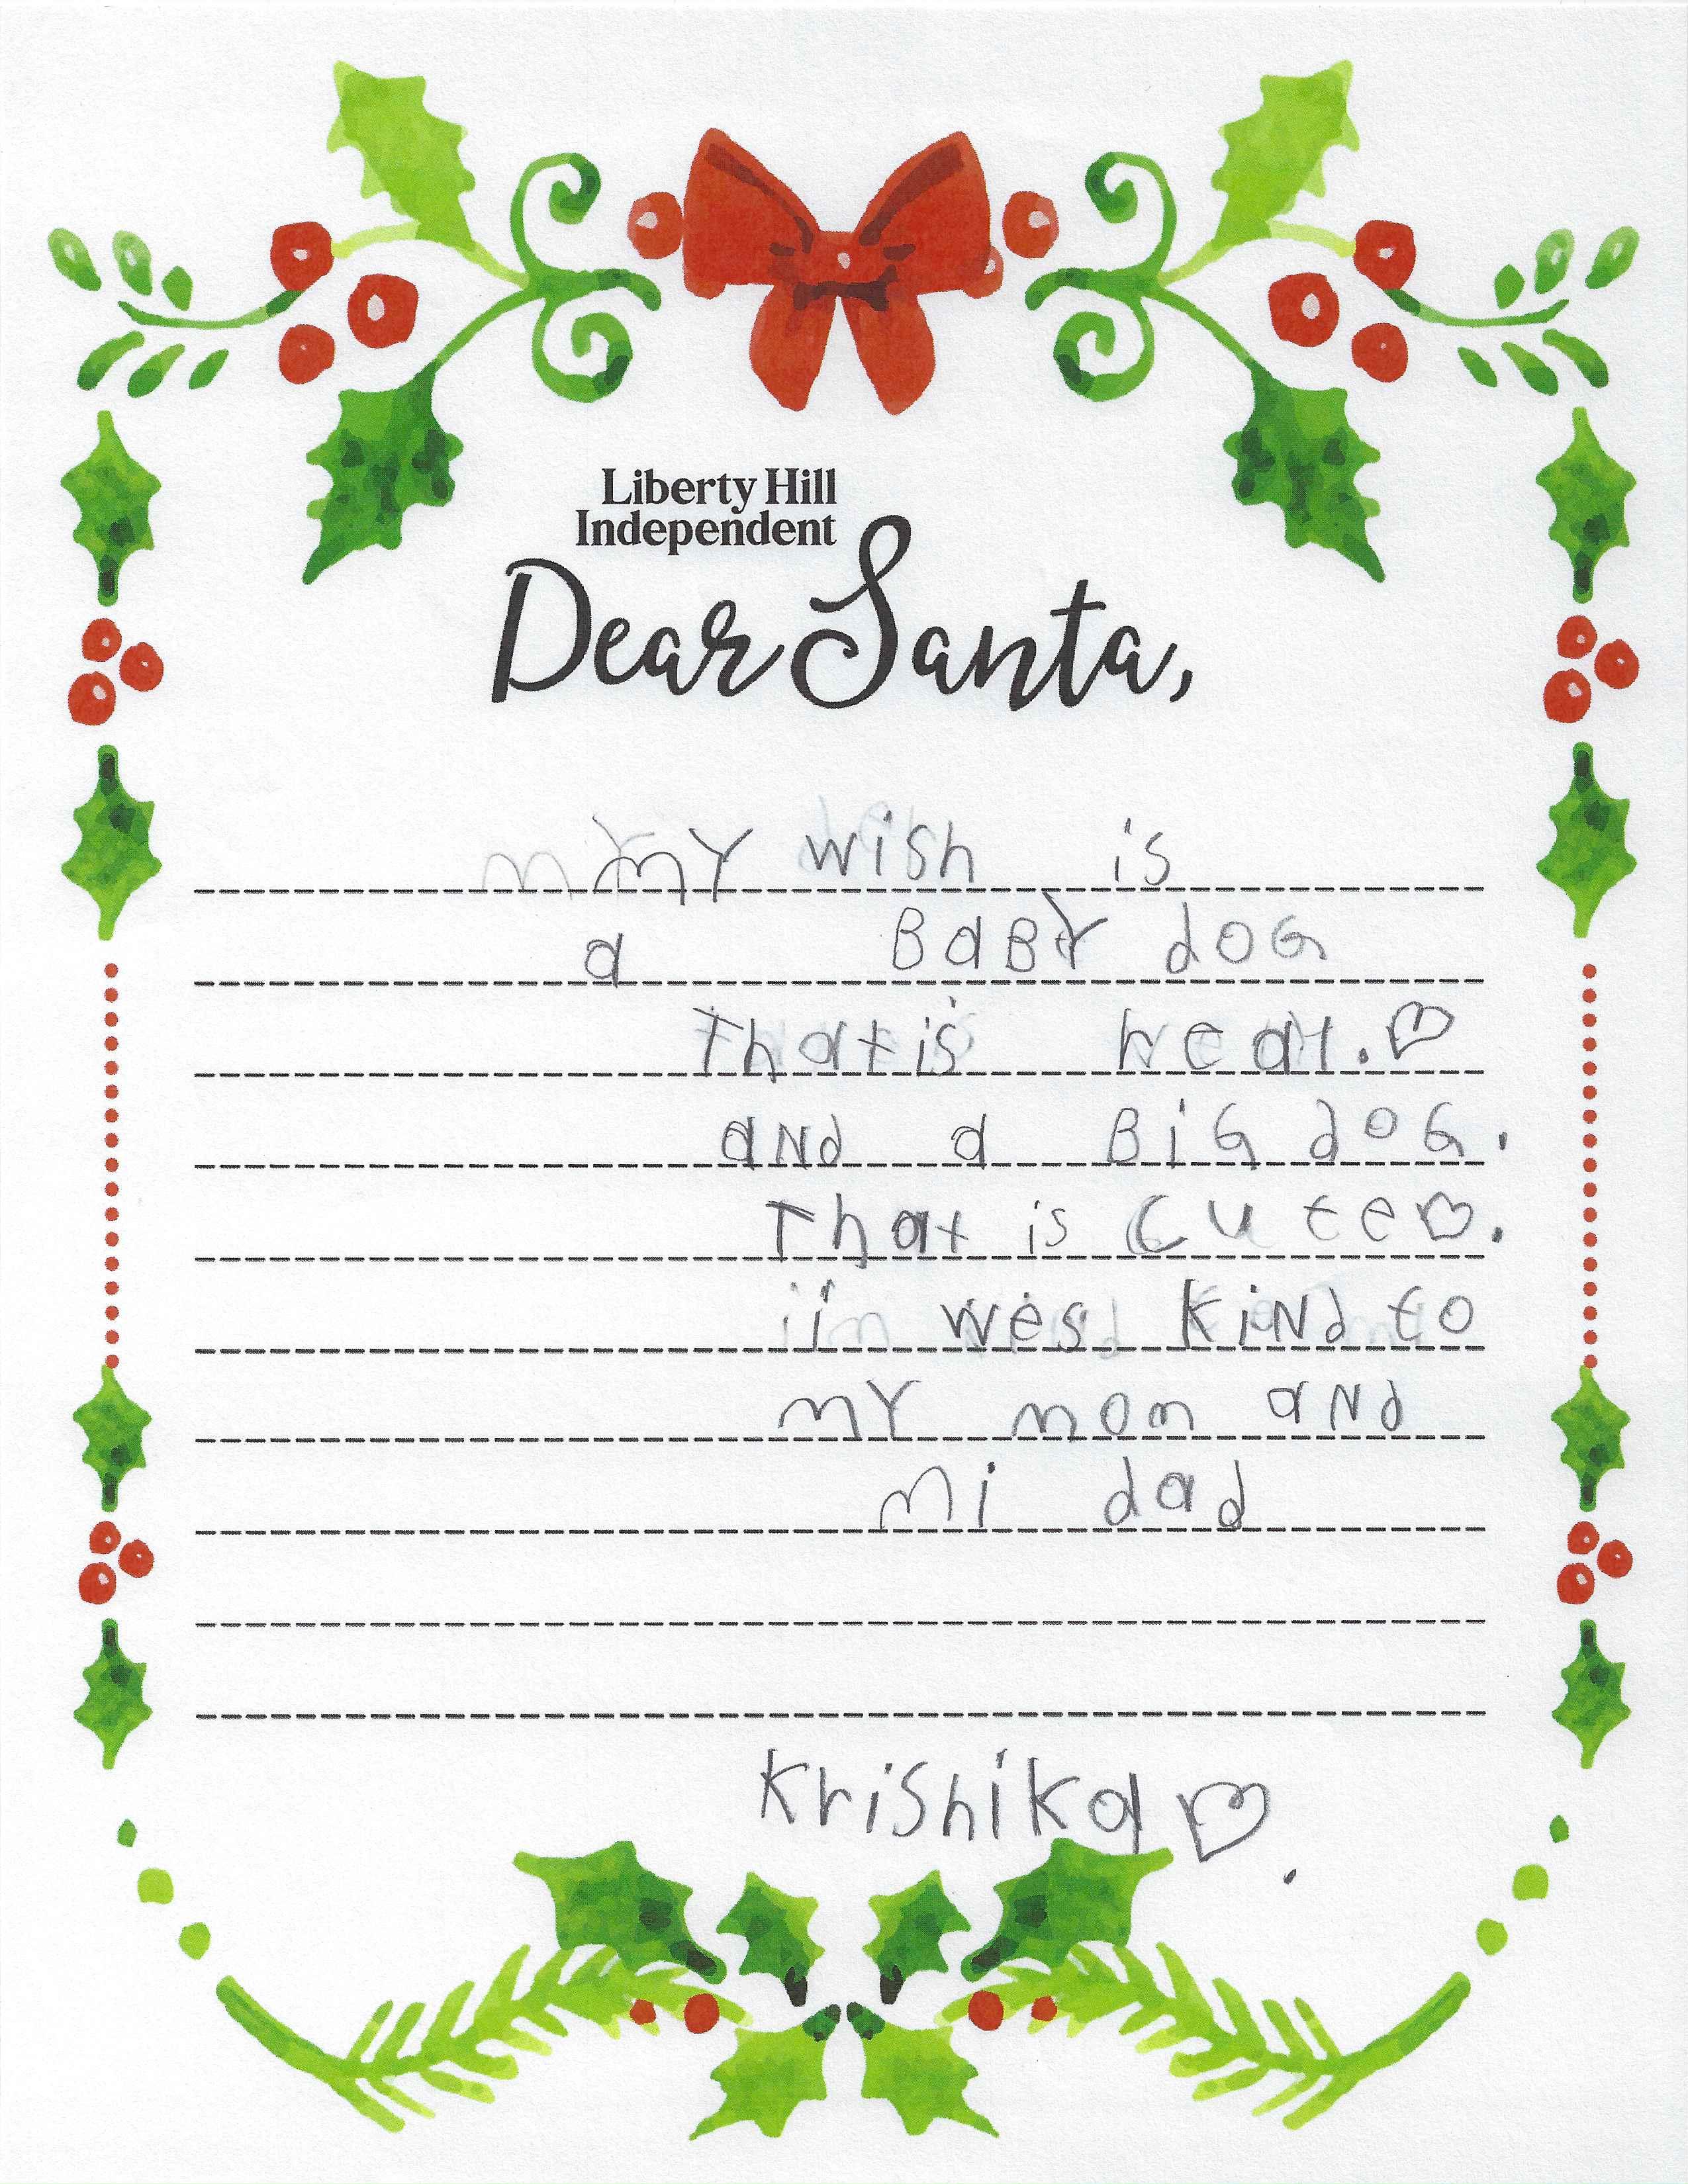 Liberty Hill
Independent
Dear Santa,
mY wish is
a BaBY dOG
That is real.
aNd a BiG dOG.
That is Cute.
i wes KiNd to
mY mom aNd
mi dad
Krishika.